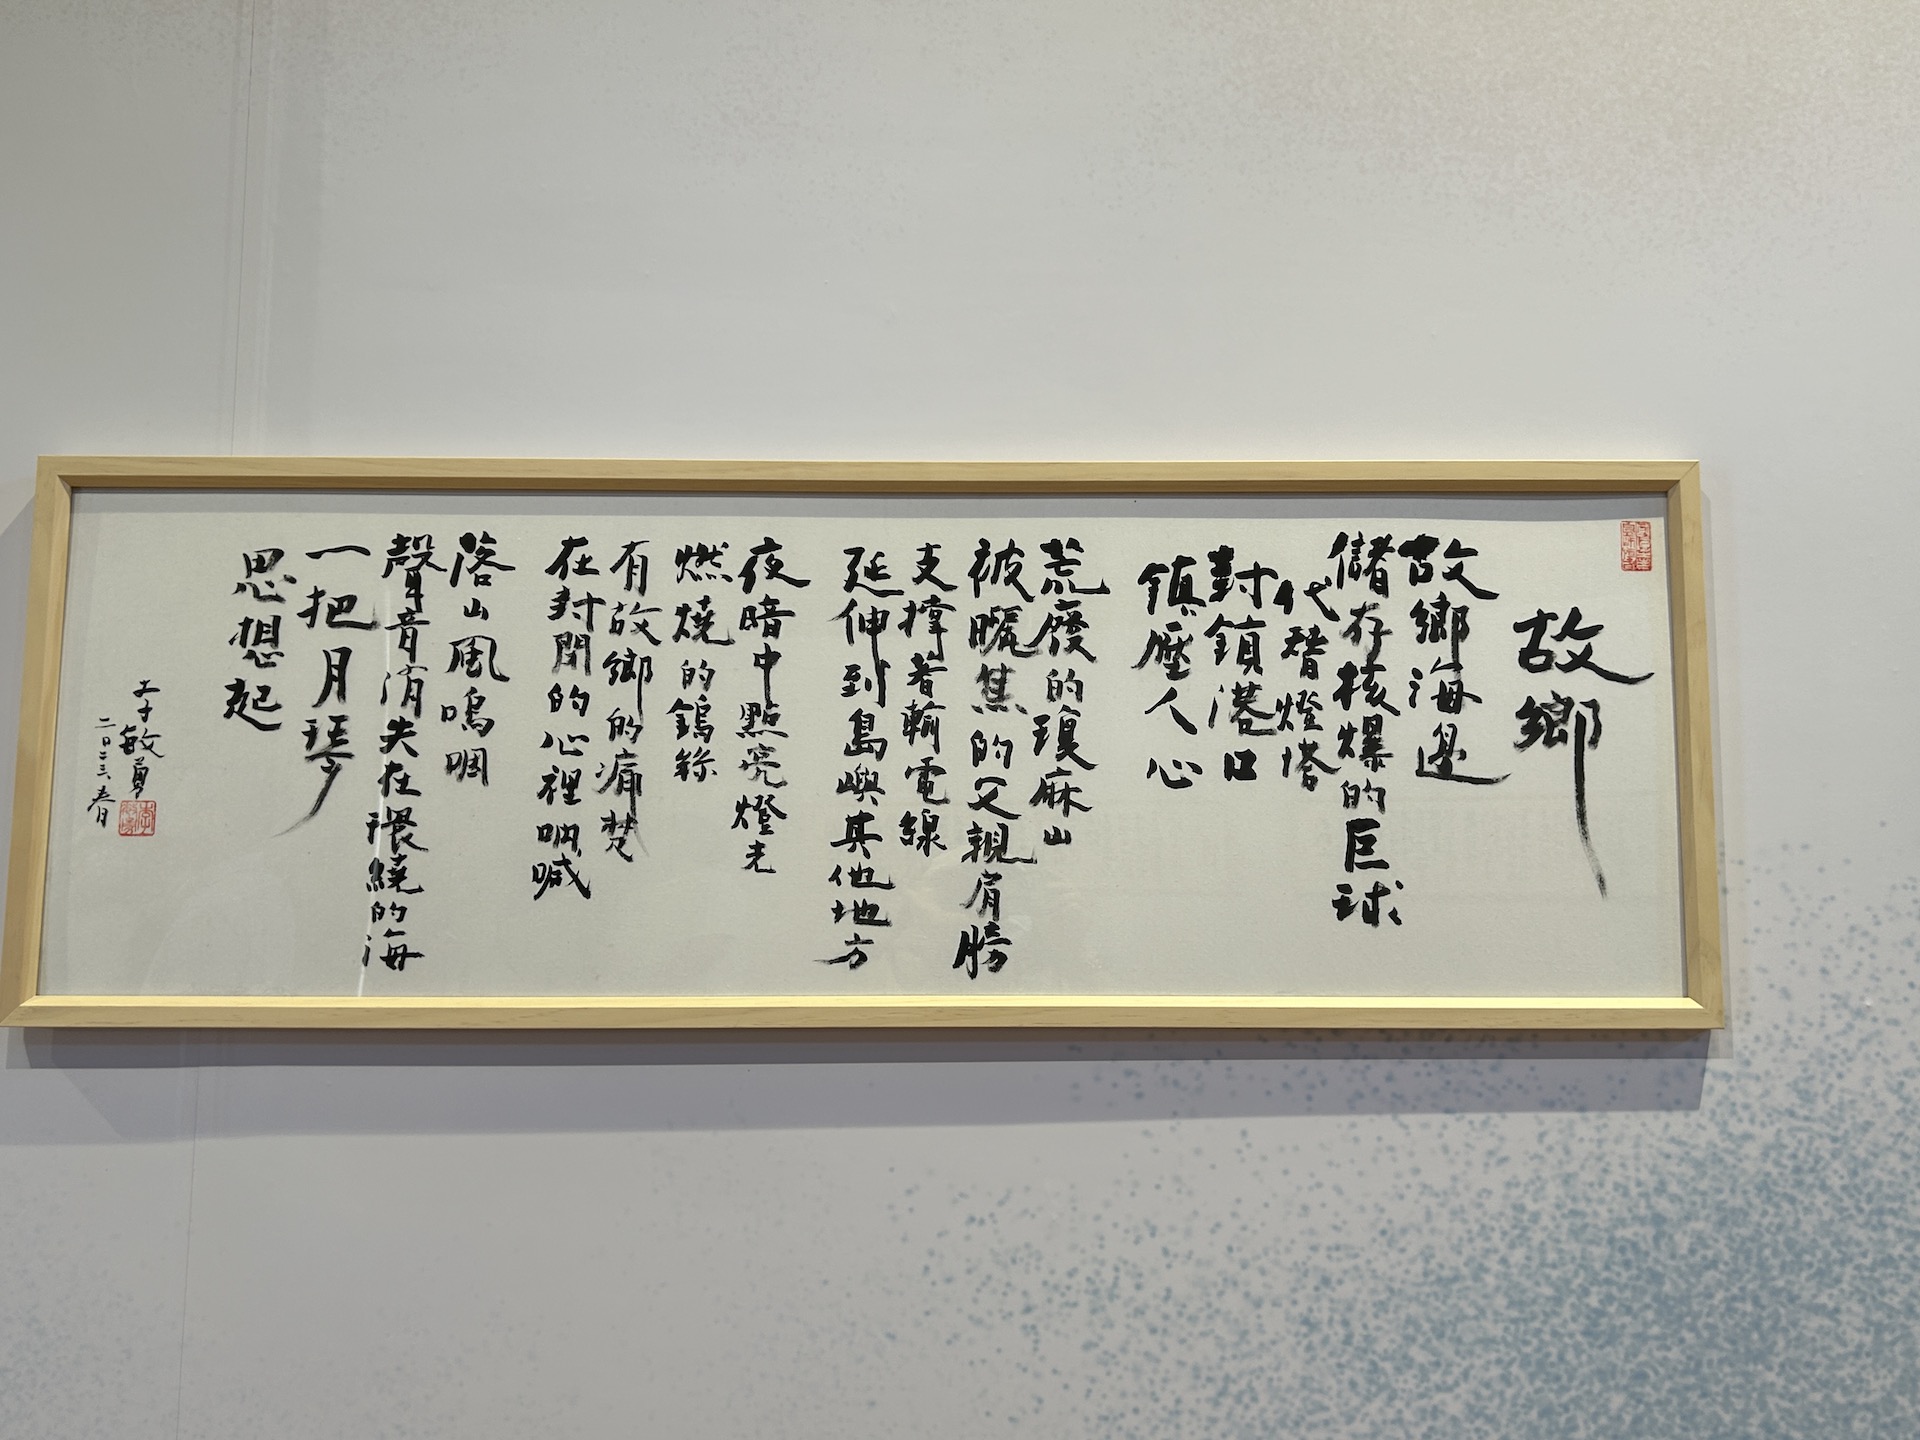 故鄉
故鄉海邊
儲存核爆的巨球
代替燈塔
對鎖港口
鎮壓人心
荒廢的瓊麻山
被曬焦的父親肩膀
支撐著輸電線
延伸到島嶼其他地方
夜暗中點亮燈光
燃燒的鎢絲
有故鄉的痛楚
在封閉的心裡吶喊
落山風嗚咽
聲音消失在環繞的海
一把月琴
思想起
李敏勇
二〇二三春